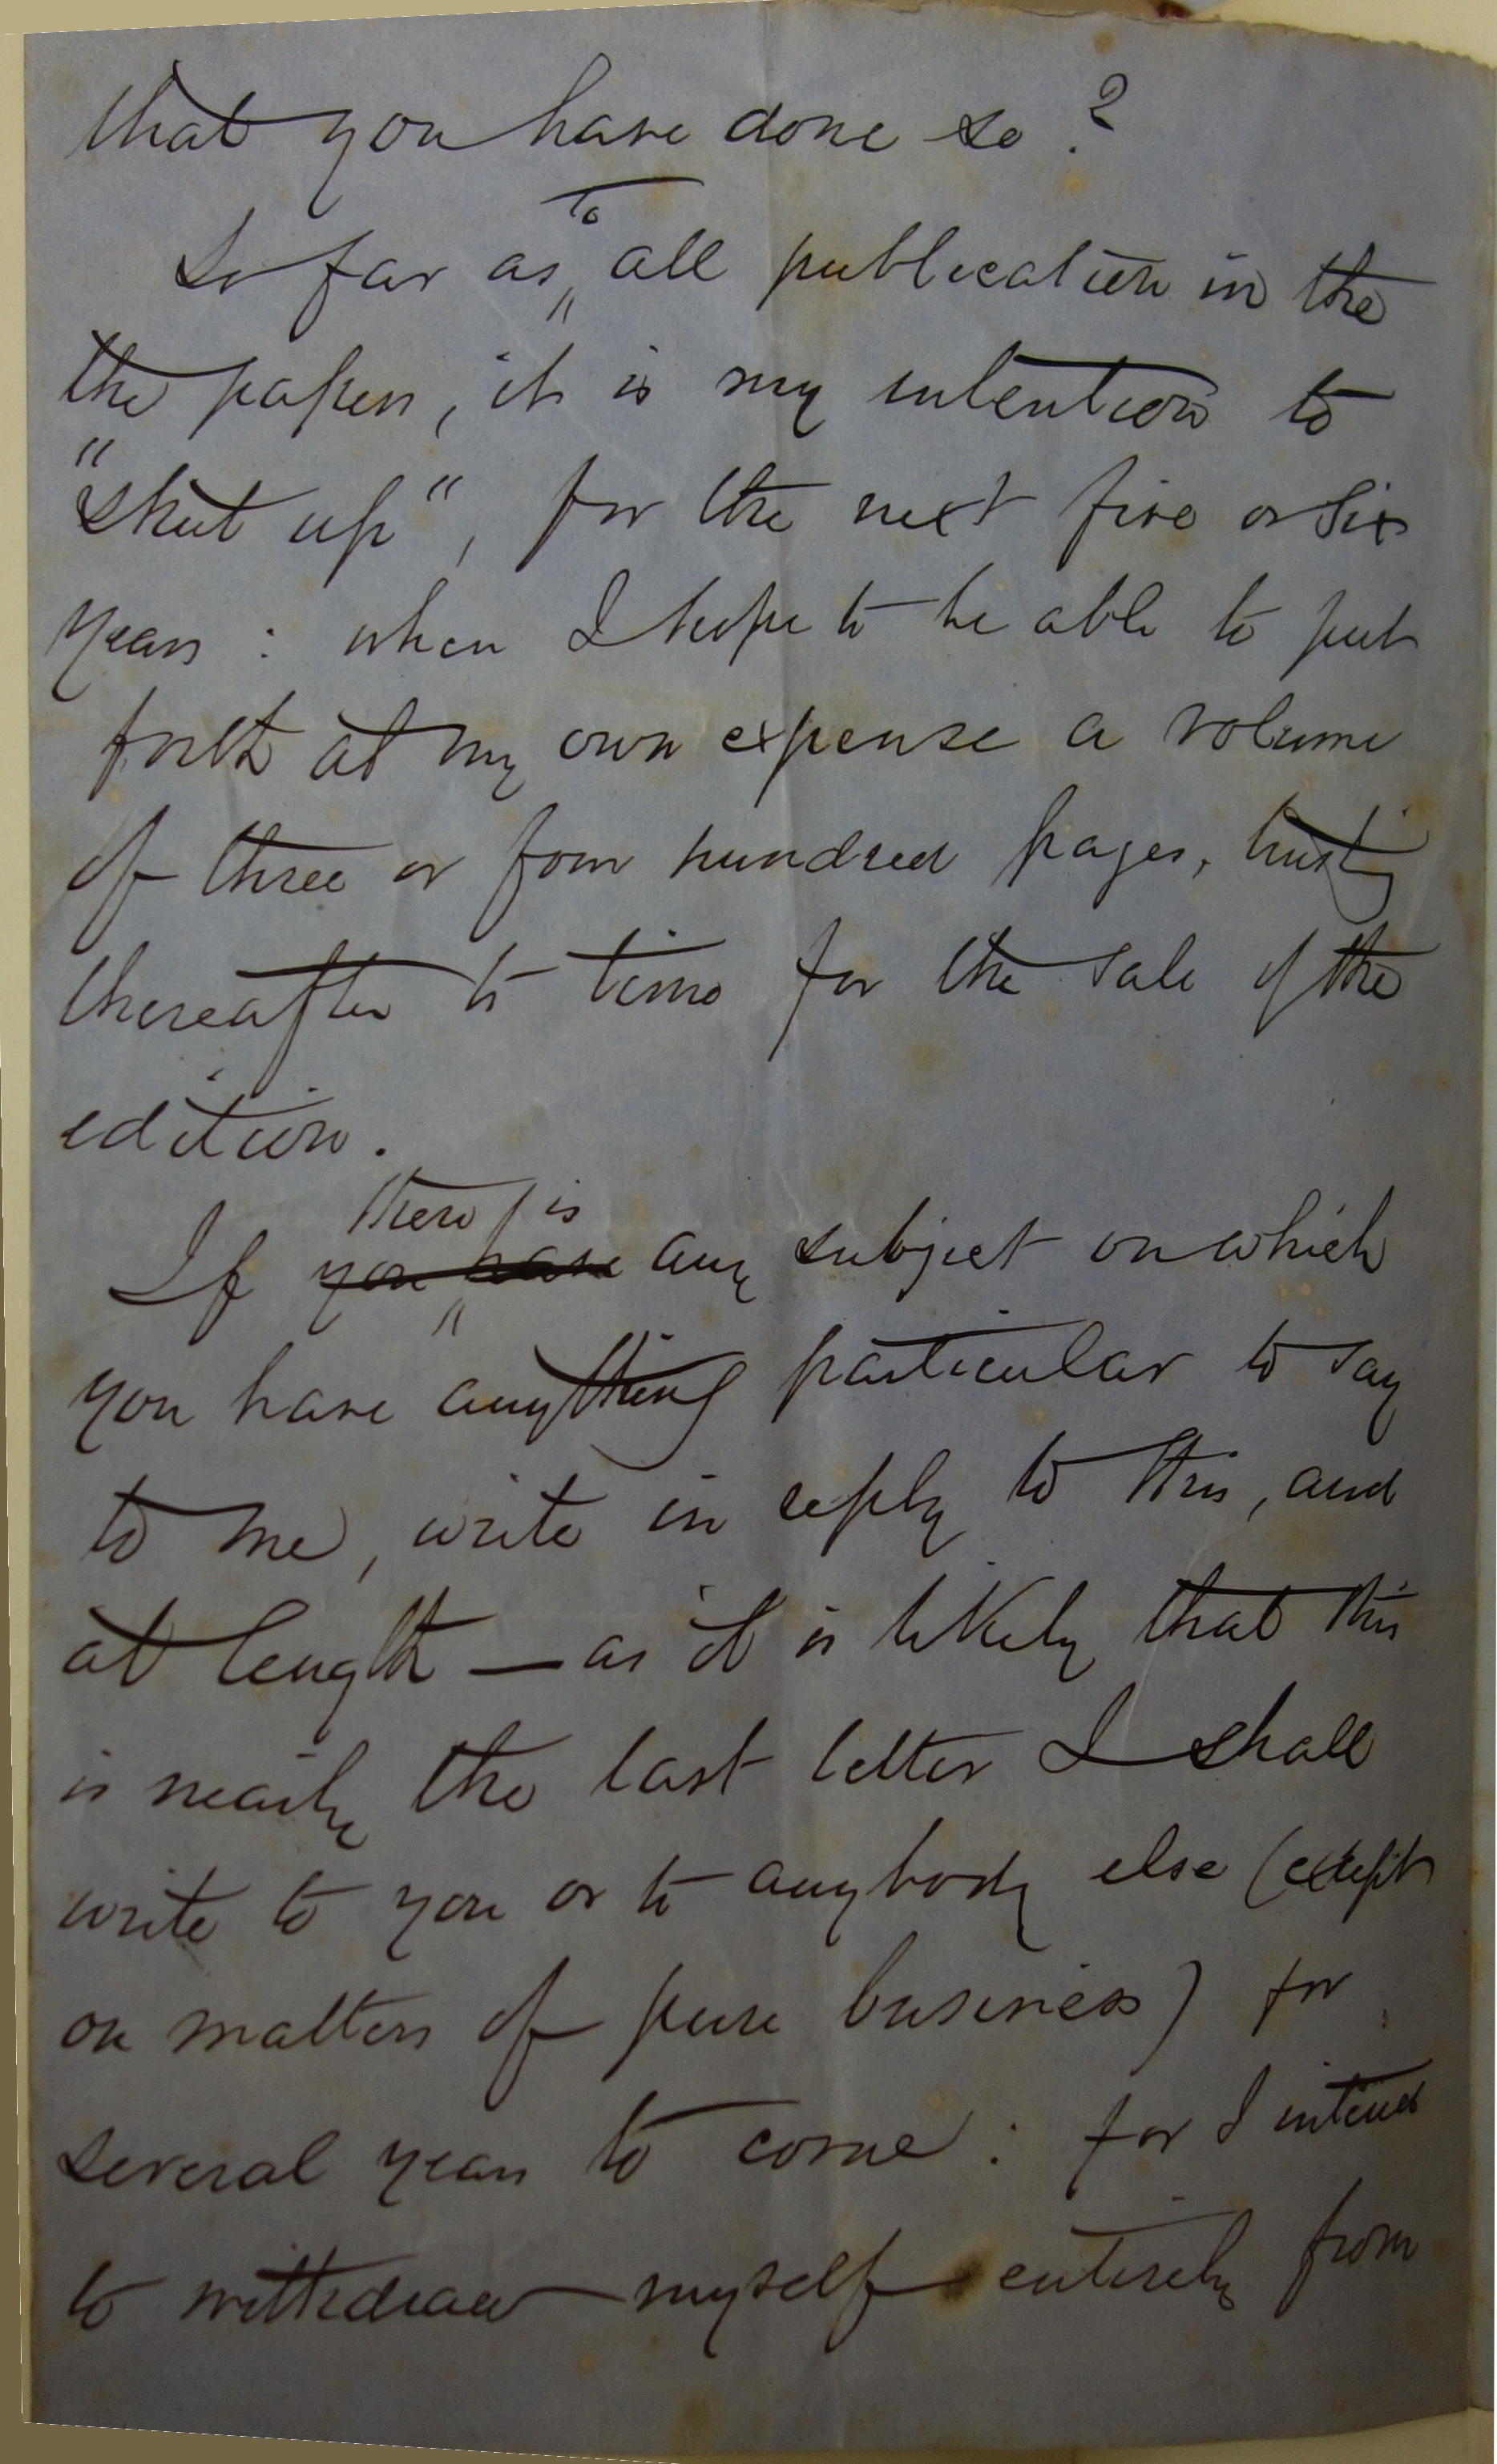 that you have done so?
to
So far as all publication in the
the papers, it is my intention to
"shut up", for the next five or six
years: when I hope to be able to put
forth at my own expense a volume
of three or four hundred pages, trusting
thereafter to time for the sale of the
edition.
there is
If you have any subject on which
you have anything particular to say
to me, write in reply to this, and
at length — as it is likely that this
is nearly the last letter I shall
write to you or to anybody else (except
on matters of pure business) for
several years to come: for I intend
to withdraw myself entirely from